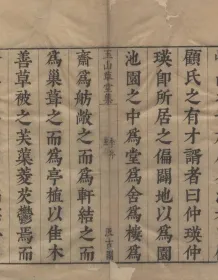 顧氏之有才諝者曰仲瑛仲
瑛卽所居之偏闢地以爲園
池園之中爲堂爲舍爲樓爲
玉山草堂集
汲古閣
齋爲舫敞之而爲軒結之而
爲巢葺之而爲亭植以佳木
善草被之芙蕖菱芡鬱焉而